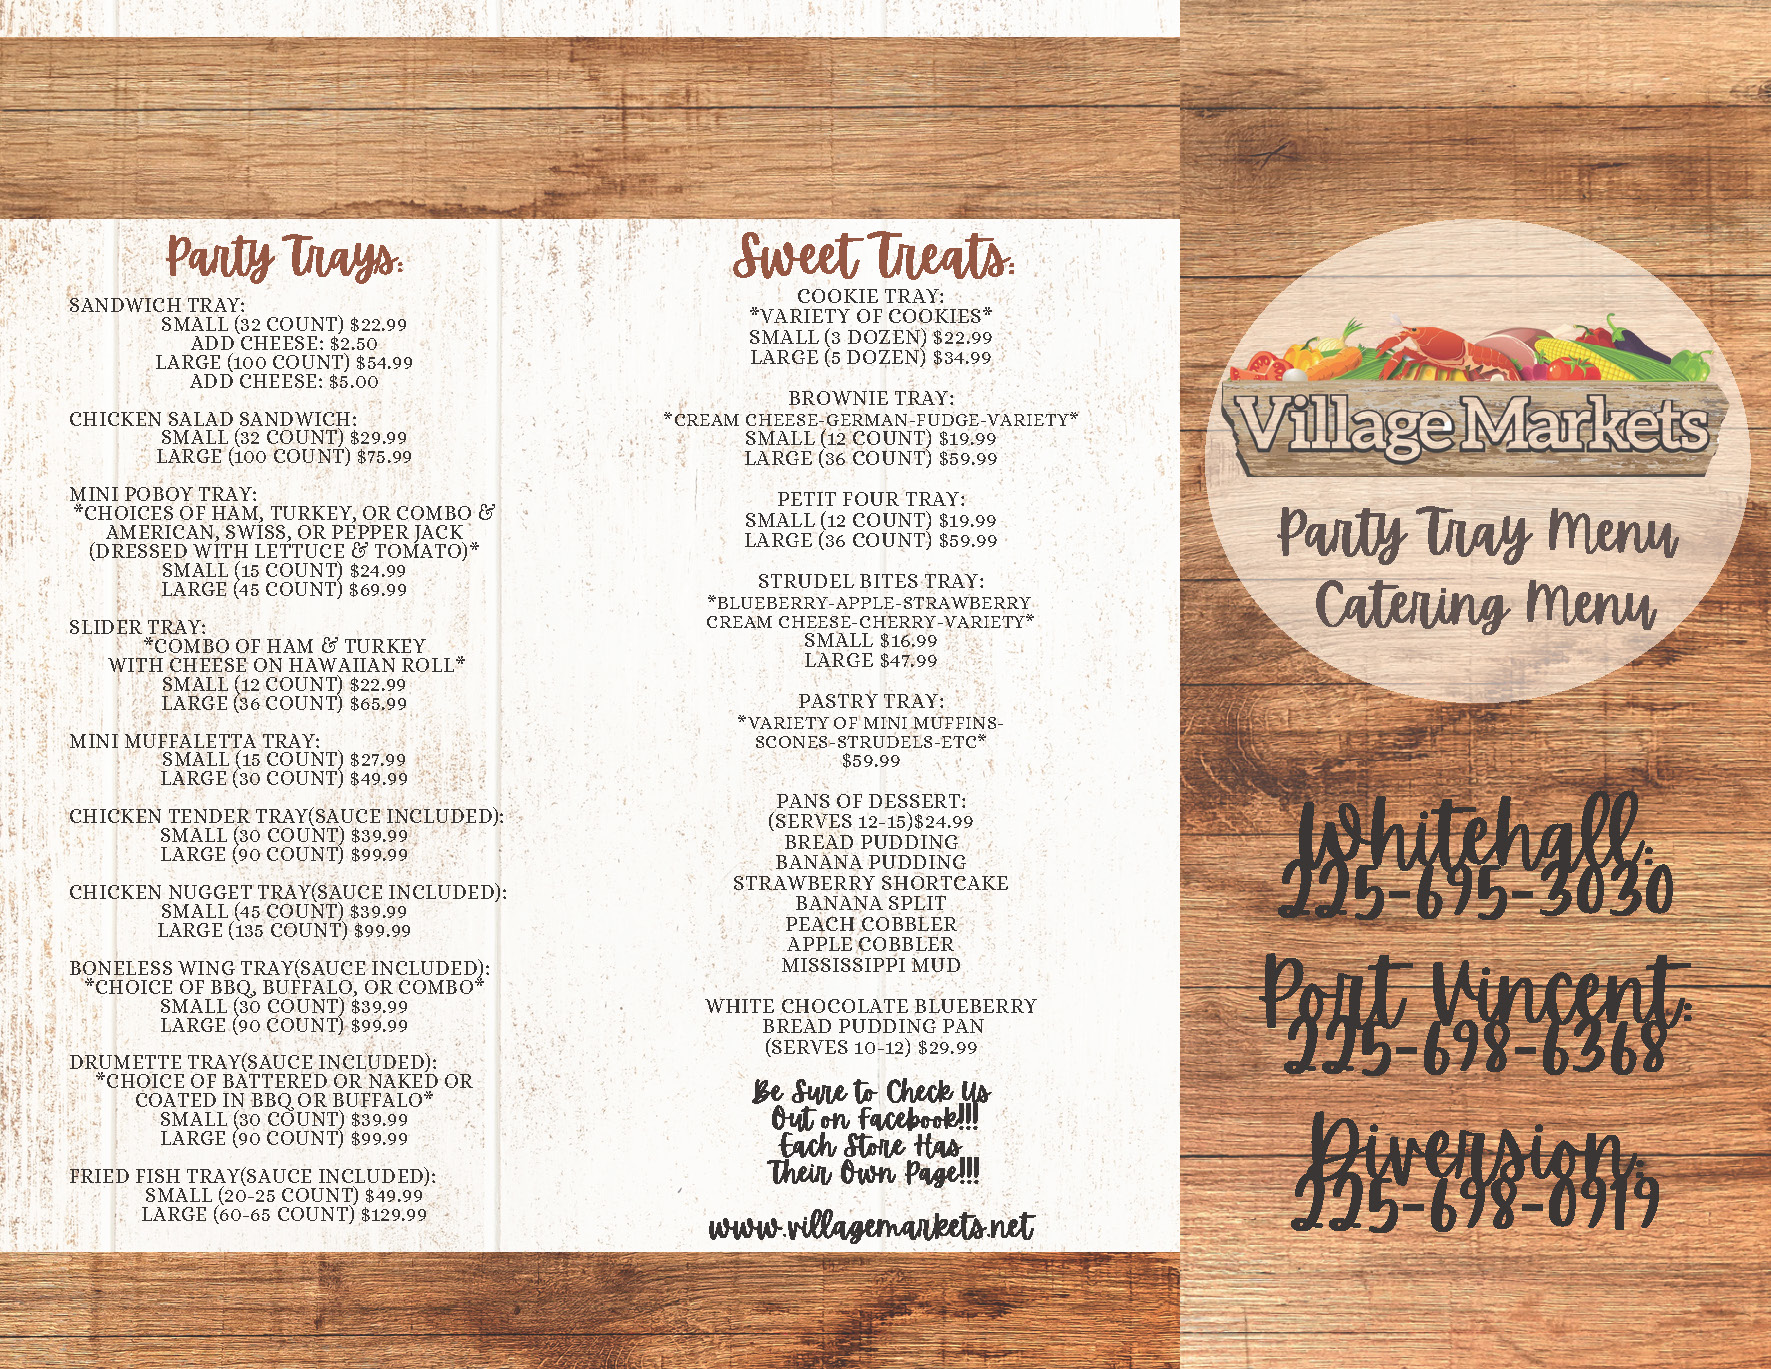 Party Trays:
SANDWICH TRAY:
SMALL (32 COUNT) $22.99
ADD CHEESE: $2.50
LARGE (100 COUNT) $54.99
ADD CHEESE: $5.00
CHICKEN SALAD SANDWICH:
SMALL (32 COUNT) $29.99
LARGE (100 COUNT) $75.99
MINI POBOY TRAY:
*CHOICES OF HAM, TURKEY, OR COMBO &
AMERICAN, SWISS, OR PEPPER JACK
(DRESSED WITH LETTUCE & TOMATO)*
SMALL (15 COUNT) $24.99
LARGE (45 COUNT) $69.99
SLIDER TRAY:
*COMBO OF HAM & TURKEY
WITH CHEESE ON HAWAIIAN ROLL*
SMALL (12 COUNT) $22.99
LARGE (36 COUNT) $65.99
MINI MUFFALETTA TRAY:
SMALL (15 COUNT) $27.99
LARGE (30 COUNT) $49.99
CHICKEN TENDER TRAY(SAUCE INCLUDED):
SMALL (30 COUNT) $39.99
LARGE (90 COUNT) $99.99
CHICKEN NUGGET TRAY(SAUCE INCLUDED):
SMALL (45 COUNT) $39.99
LARGE (135 COUNT) $99.99
BONELESS WING TRAY(SAUCE INCLUDED):
*CHOICE OF BBQ, BUFFALO, OR COMBO*
SMALL (30 COUNT) $39.99
LARGE (90 COUNT) $99.99
DRUMETTE TRAY(SAUCE INCLUDED):
*CHOICE OF BATTERED OR NAKED OR
COATED IN BBQ OR BUFFALO*
SMALL (30 COUNT) $39.99
LARGE (90 COUNT) $99.99
FRIED FISH TRAY(SAUCE INCLUDED):
SMALL (20-25 COUNT) $49.99
LARGE (60-65 COUNT) $129.99
Sweet Treats:
COOKIE TRAY:
*VARIETY OF COOKIES*
SMALL (3 DOZEN) $22.99
LARGE (5 DOZEN) $34.99
BROWNIE TRAY:
*CREAM CHEESE-GERMAN-FUDGE-VARIETY*
SMALL (12 COUNT) $19.99
LARGE (36 COUNT) $59.99
PETIT FOUR TRAY:
SMALL (12 COUNT) $19.99
LARGE (36 COUNT) $59.99
STRUDEL BITES TRAY:
*BLUEBERRY-APPLE-STRAWBERRY
CREAM CHEESE-CHERRY-VARIETY*
SMALL $16.99
LARGE $47.99
PASTRY TRAY:
*VARIETY OF MINI MUFFINS-
SCONES-STRUDELS-ETC*
$59.99
PANS OF DESSERT:
(SERVES 12-15)$24.99
BREAD PUDDING
BANANA PUDDING
STRAWBERRY SHORTCAKE
BANANA SPLIT
PEACH COBBLER
APPLE COBBLER
MISSISSIPPI MUD
WHITE CHOCOLATE BLUEBERRY
BREAD PUDDING PAN
(SERVES 10-12) $29.99
Be Sure to Check Us
Out on Facebook!!!
Each Store Has
Their Own Page!!!
www.villagemarkets.net
Village Markets
Party Tray Menu
Catering Menu
Whitehall:
225-695-3030
Port Vincent:
225-698-6368
Diversion:
225-698-0919